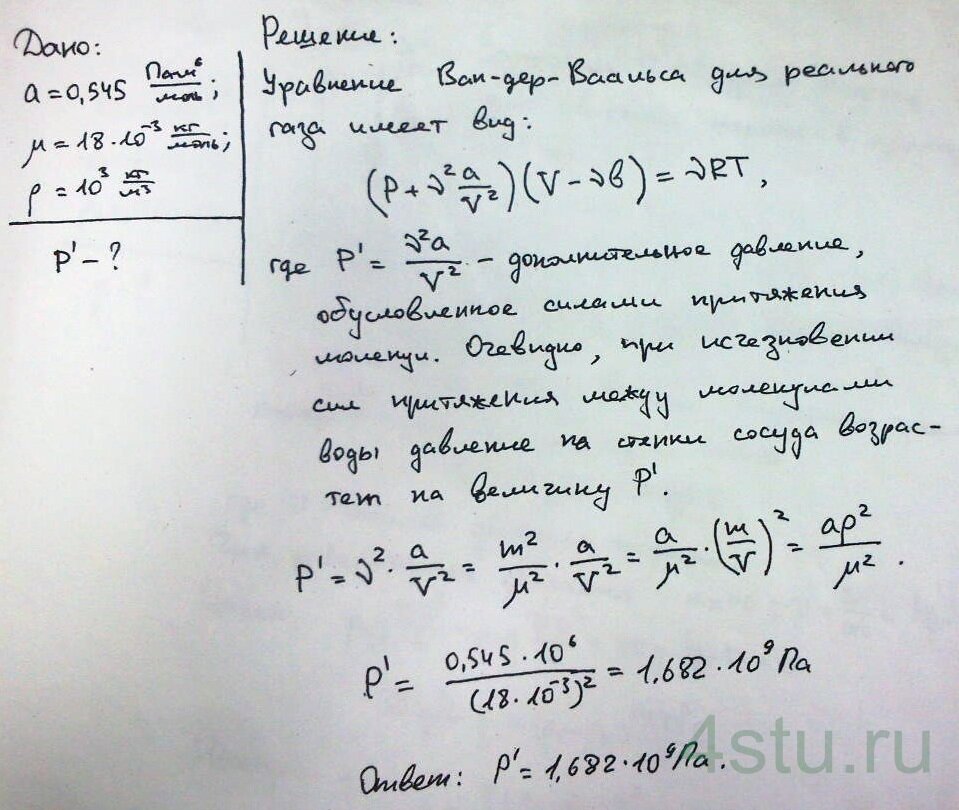 Дано:
a = 0,545 Па·м⁶/моль;
μ = 18·10⁻³ кг/моль;
ρ = 10³ кг/м³
P' – ?
Решение:
Уравнение Ван-дер-Ваальса для реального
газа имеет вид:
(P + ν² a/V²)(V – νb) = νRT,
где P' = ν²a/V² – дополнительное давление,
обусловленное силами притяжения
молекул. Очевидно, при исчезновении
сил притяжения между молекулами
воды давление на стенки сосуда возрас-
тет на величину P'.
P' = ν² · a/V² = m²/μ² · a/V² = a/μ² · (m/V)² = aρ²/μ² .
P' = 0,545·10⁶/(18·10⁻³)² = 1,682·10⁹ Па
Ответ: P' = 1,682·10⁹ Па.
4stu.ru